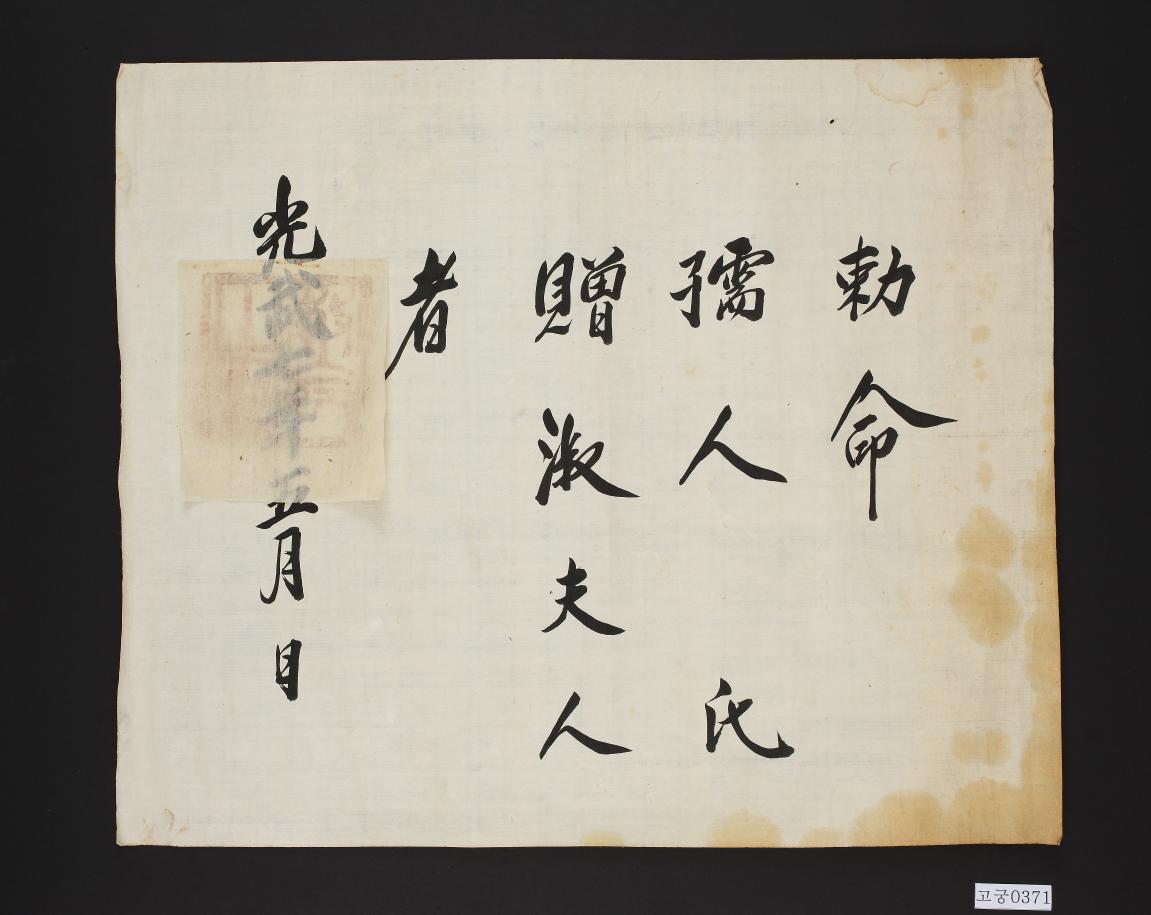 勅命
孺人 氏
贈淑夫人
者
光武七年五月 日
고궁0371